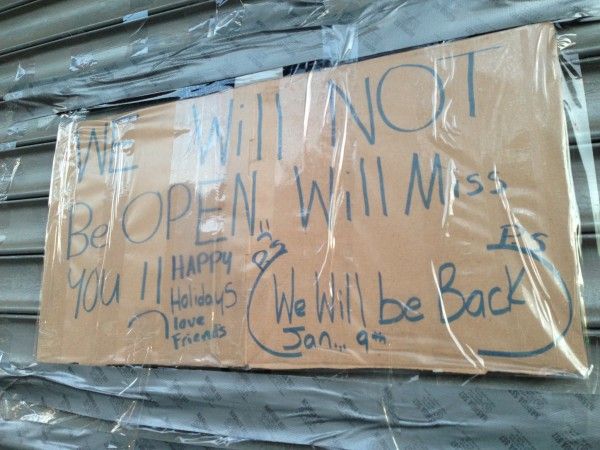 WE Will NOT
Be OPEN.. Will Miss
YOU !!
HAPPY
Holidays
love
Friends
We Will be Back
Jan... 9th